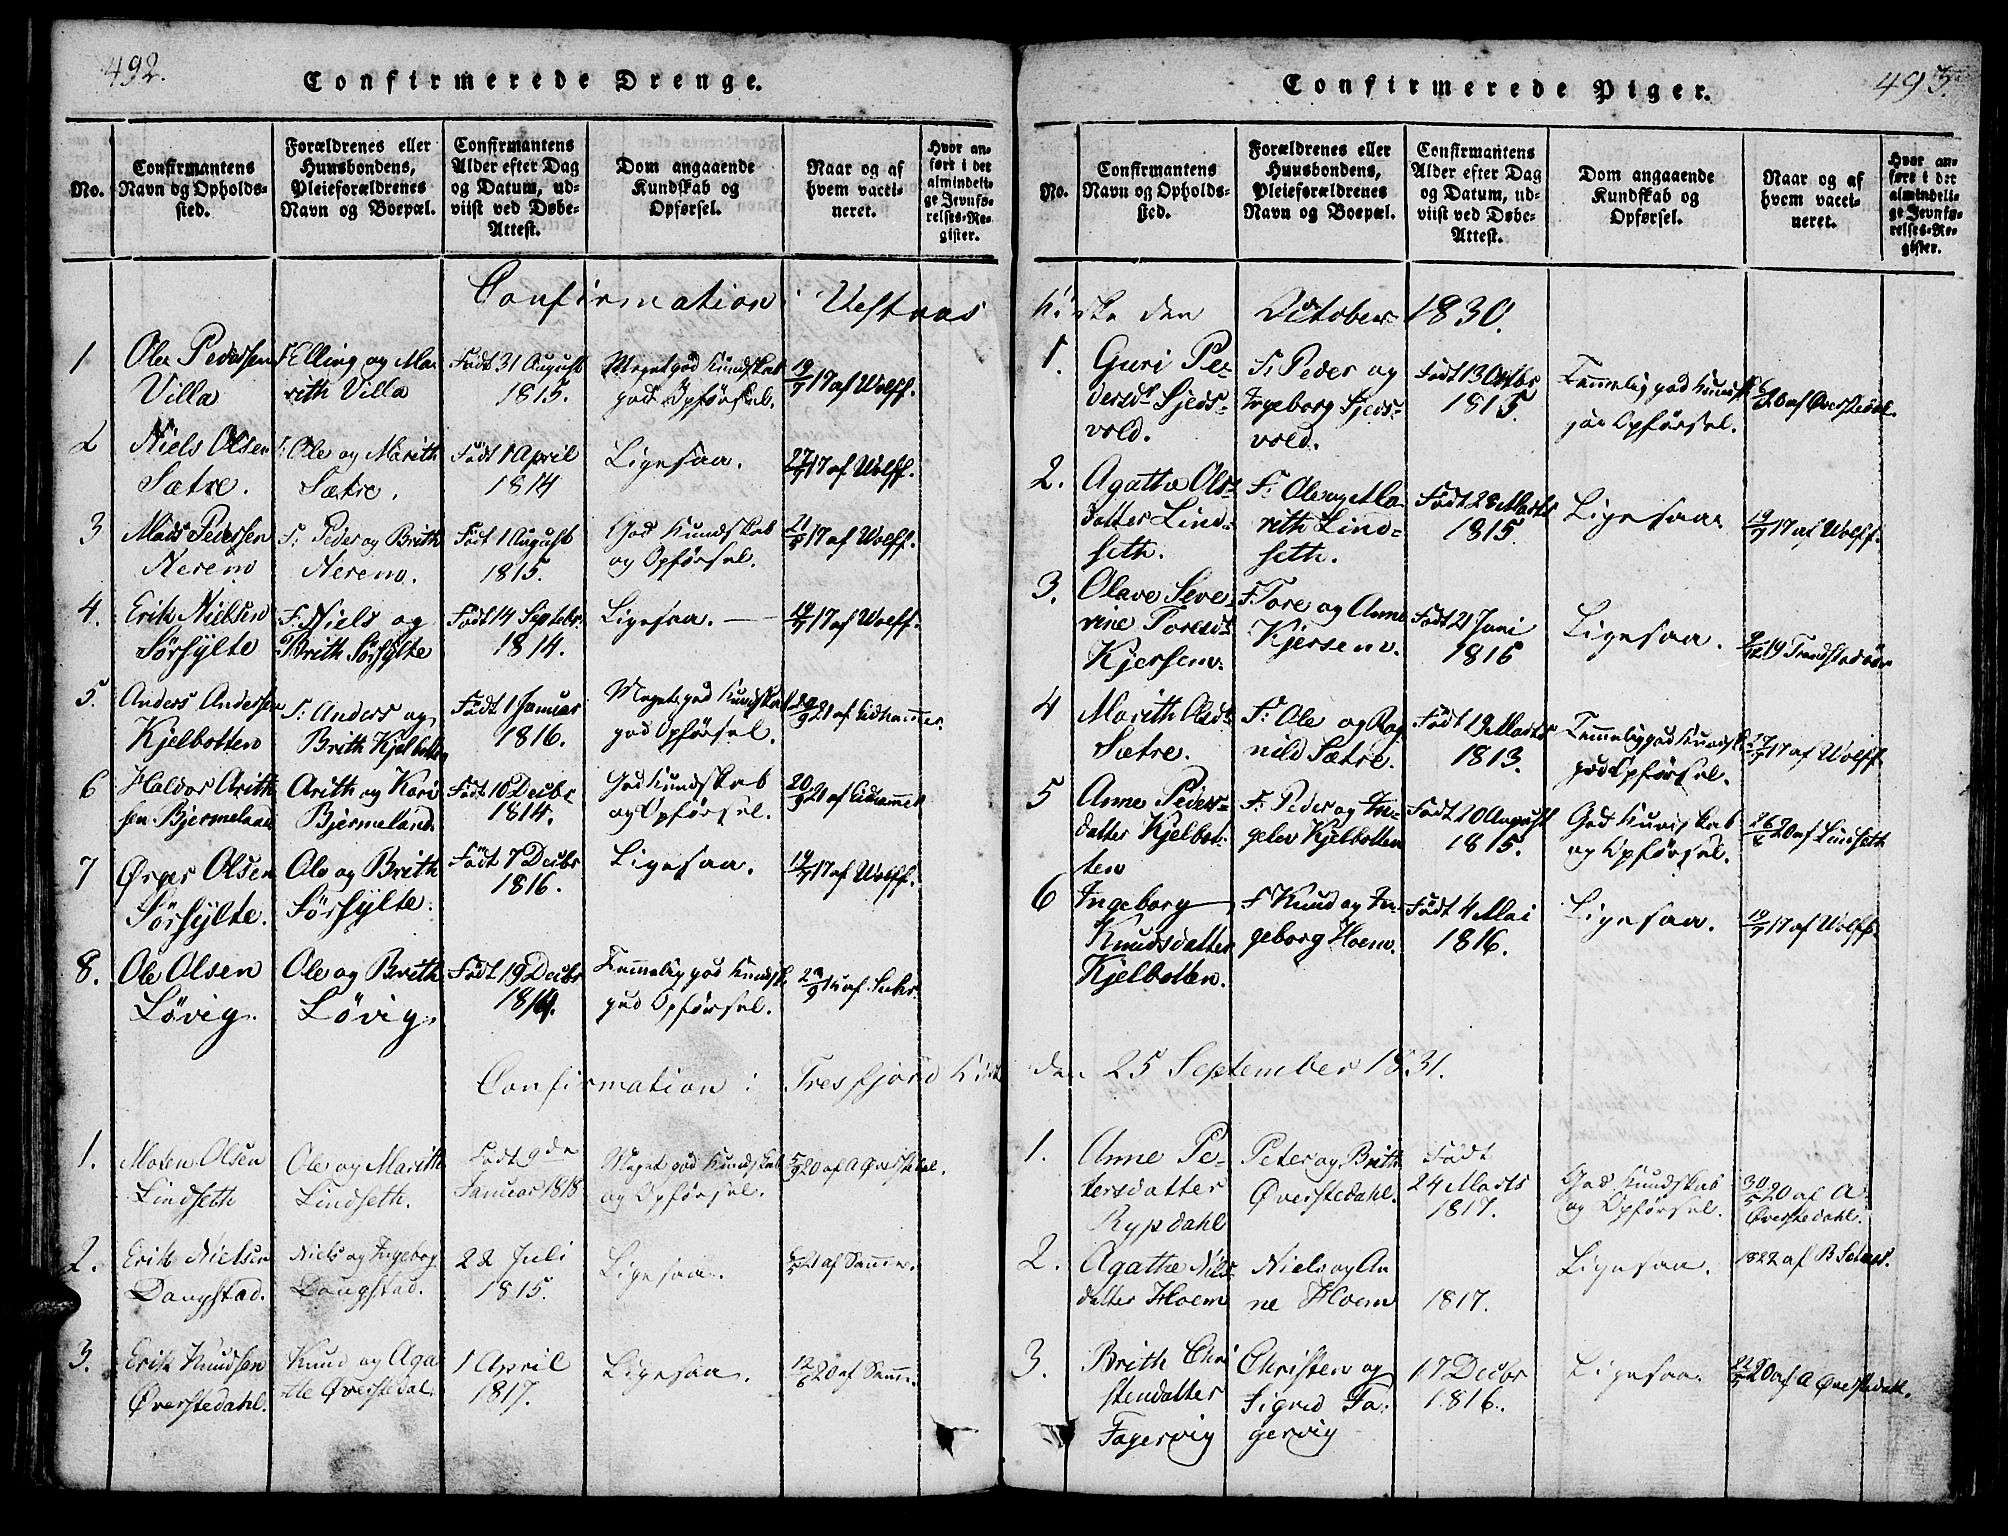 492.
Confirmerede Drenge.
No.
Confirmantens
Navn og Opholds-
sted.
Forældrenes eller
Huusbondens,
Pleieforældrenes
Navn og Boepæl.
Confirmantens
Alder efter Dag
og Datum, ud-
viist ved Døbe-
Attest.
Dom angaaende
Kundskab og
Opførsel.
Naar og af
hvem vacci-
neret.
Hvor an-
ført i det
almindeli-
ge Jevnfø-
relses-Re-
gister.
Confirmation i Vestnæs
1
Ole Pedersen
Villa
F: Elling og Ma
rith Villa
Født 31 August
1815.
Meget god Kundskab
god Opførsel.
19/7 17 af Wolff.
2
Niels Olsen
Sætre.
F: Ole og Marith
Sætre.
Født 1 April
1814
Ligesaa.
27/7 17 af Wolff.
3
Mads Pedersen
Nerem
F: Peder og Brith
Nerem.
Født 1 August
1815.
God Kundskab
og Opførsel.
17 af Wolff.
4.
Erik Nielsen
Sørsylte
F: Niels og
Brith Sørsylte
Født 14 Septebr.
1814.
Ligesaa.
19/7 17 af Wolff.
5.
Anders Andersen
Kjelbotten
F: Anders og
Brith Kjelbotten
Født 1 Januar
1816.
Meget god Kundskab
god Opførsel.
21 af Lidhammer.
6
Haldor Arith
sen Bjermeland
Arith og Kari
Bjermeland.
Født 10 Decbr
1814.
God Kundskab
og Opførsel.
20/9 21 af
7
Ørger Olsen
Sørsylte.
Ole og Brith
Sørsylte.
Født 7 Decbr
1816.
Ligesaa.
19/7 17 af Wolff.
8.
Ole Olsen
Løvig.
Ole og Brith
Løvig.
Født 19 Decbr
1814.
Temmelig god Kundsk.
god Opførsel.
Confirmation i Tresfjord Kirke
1.
Mosen Olsen
Lindseth
Ole og Marith
Lindseth.
Født 9de
Januar 1818
Meget god Kundskab
og Opførsel.
5/9 20 af A Øverstedal.
2.
Erik Nielsen
Daugstad.
Niels og Ingeborg
Daugstad.
22 Juli
1815.
Ligesaa.
21 af
3.
Erik Knudsen
Øverstedahl.
Knud og Aga
the Øverstedal.
1 April
1817.
Ligesaa.
20 af
493.
Confirmerede Piger.
No.
Confirmantens
Navn og Opholds-
sted.
Forældrenes eller
Huusbondens,
Pleieforældrenes
Navn og Boepæl.
Confirmantens
Alder efter Dag
og Datum, ud-
viist ved Døbe-
Attest.
Dom angaaende
Kundskab og
Opførsel.
Naar og af
hvem vacci-
neret.
Hvor an-
ført i det
almindeli-
ge Jevnfø-
relses-Re-
gister.
Kirke den October 1830.
1.
Guri Pe-
dersd: Sjeds-
vold.
F: Peder og
Ingeborg Sjeds-
vold.
Født 13 Octbr
1815.
Temmelig god Kundsk
god Opførsel.
20 af Øverstedal.
2.
Agathe Ols-
datter Lind-
seth.
F: Ole og Ma-
rith Lind-
seth.
Født 28 Marts
1815.
Ligesaa
19/7 17 af Wolff.
3.
Olave Seve-
rine Toresd:
Kjersem.
F: Tore og Anne
Kjersem.
Født 21 Juni
1816
Ligesaa.
4
Marith Olsd:
Sætre.
F: Ole og Rag
nild Sætre.
Født 13 Marts
1813.
Temmelig god Kundsk
god Opførsel.
17 af Wolff
5
Anne Peders-
datter Kjelbot-
ten
F: Peder og In-
gelev Kjelbotten
Født 10 August
1815.
God Kundskab
og Opførsel.
20 af Lindseth
6
Ingeborg
Knudsdatter
Kjelbotten.
F Knud og In-
geborg Hoem.
Født 4 Mai
1816.
Ligesaa.
19/7 17 af Wolff.
den 25 September 1831.
1.
Anne Pe-
tersdatter
Rypdahl
Peter og Brith
Øverstedahl.
Født
24 Marts
1817.
God Kundskab
og Opførsel.
30/5 20 af A
Øverstedahl.
2.
Agathe Nils-
datter Hoem
Niels og An
ne Hoem
1817.
Ligesaa.
1822 af
3.
Brith Chri
stendatter
Fagervig
Christen og
Sigrid Fa-
gervig
17 Decbr
1816.
Ligesaa.
20 af A Øverstedahl.